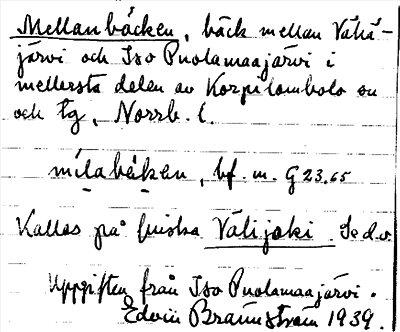 Mellanbäcken, bäck mellan Vähä-
järvi och Iso Puolamaajärvi i
mellersta delen av Korpilombolo sn
och tg, Norrb. l.
mílabä̀ken, bf. m. G 23.65
Kallas på finska Välijoki. Se d.o
Uppgiften från Iso Puolamaajärvi.
Edvin Brännström 1939.